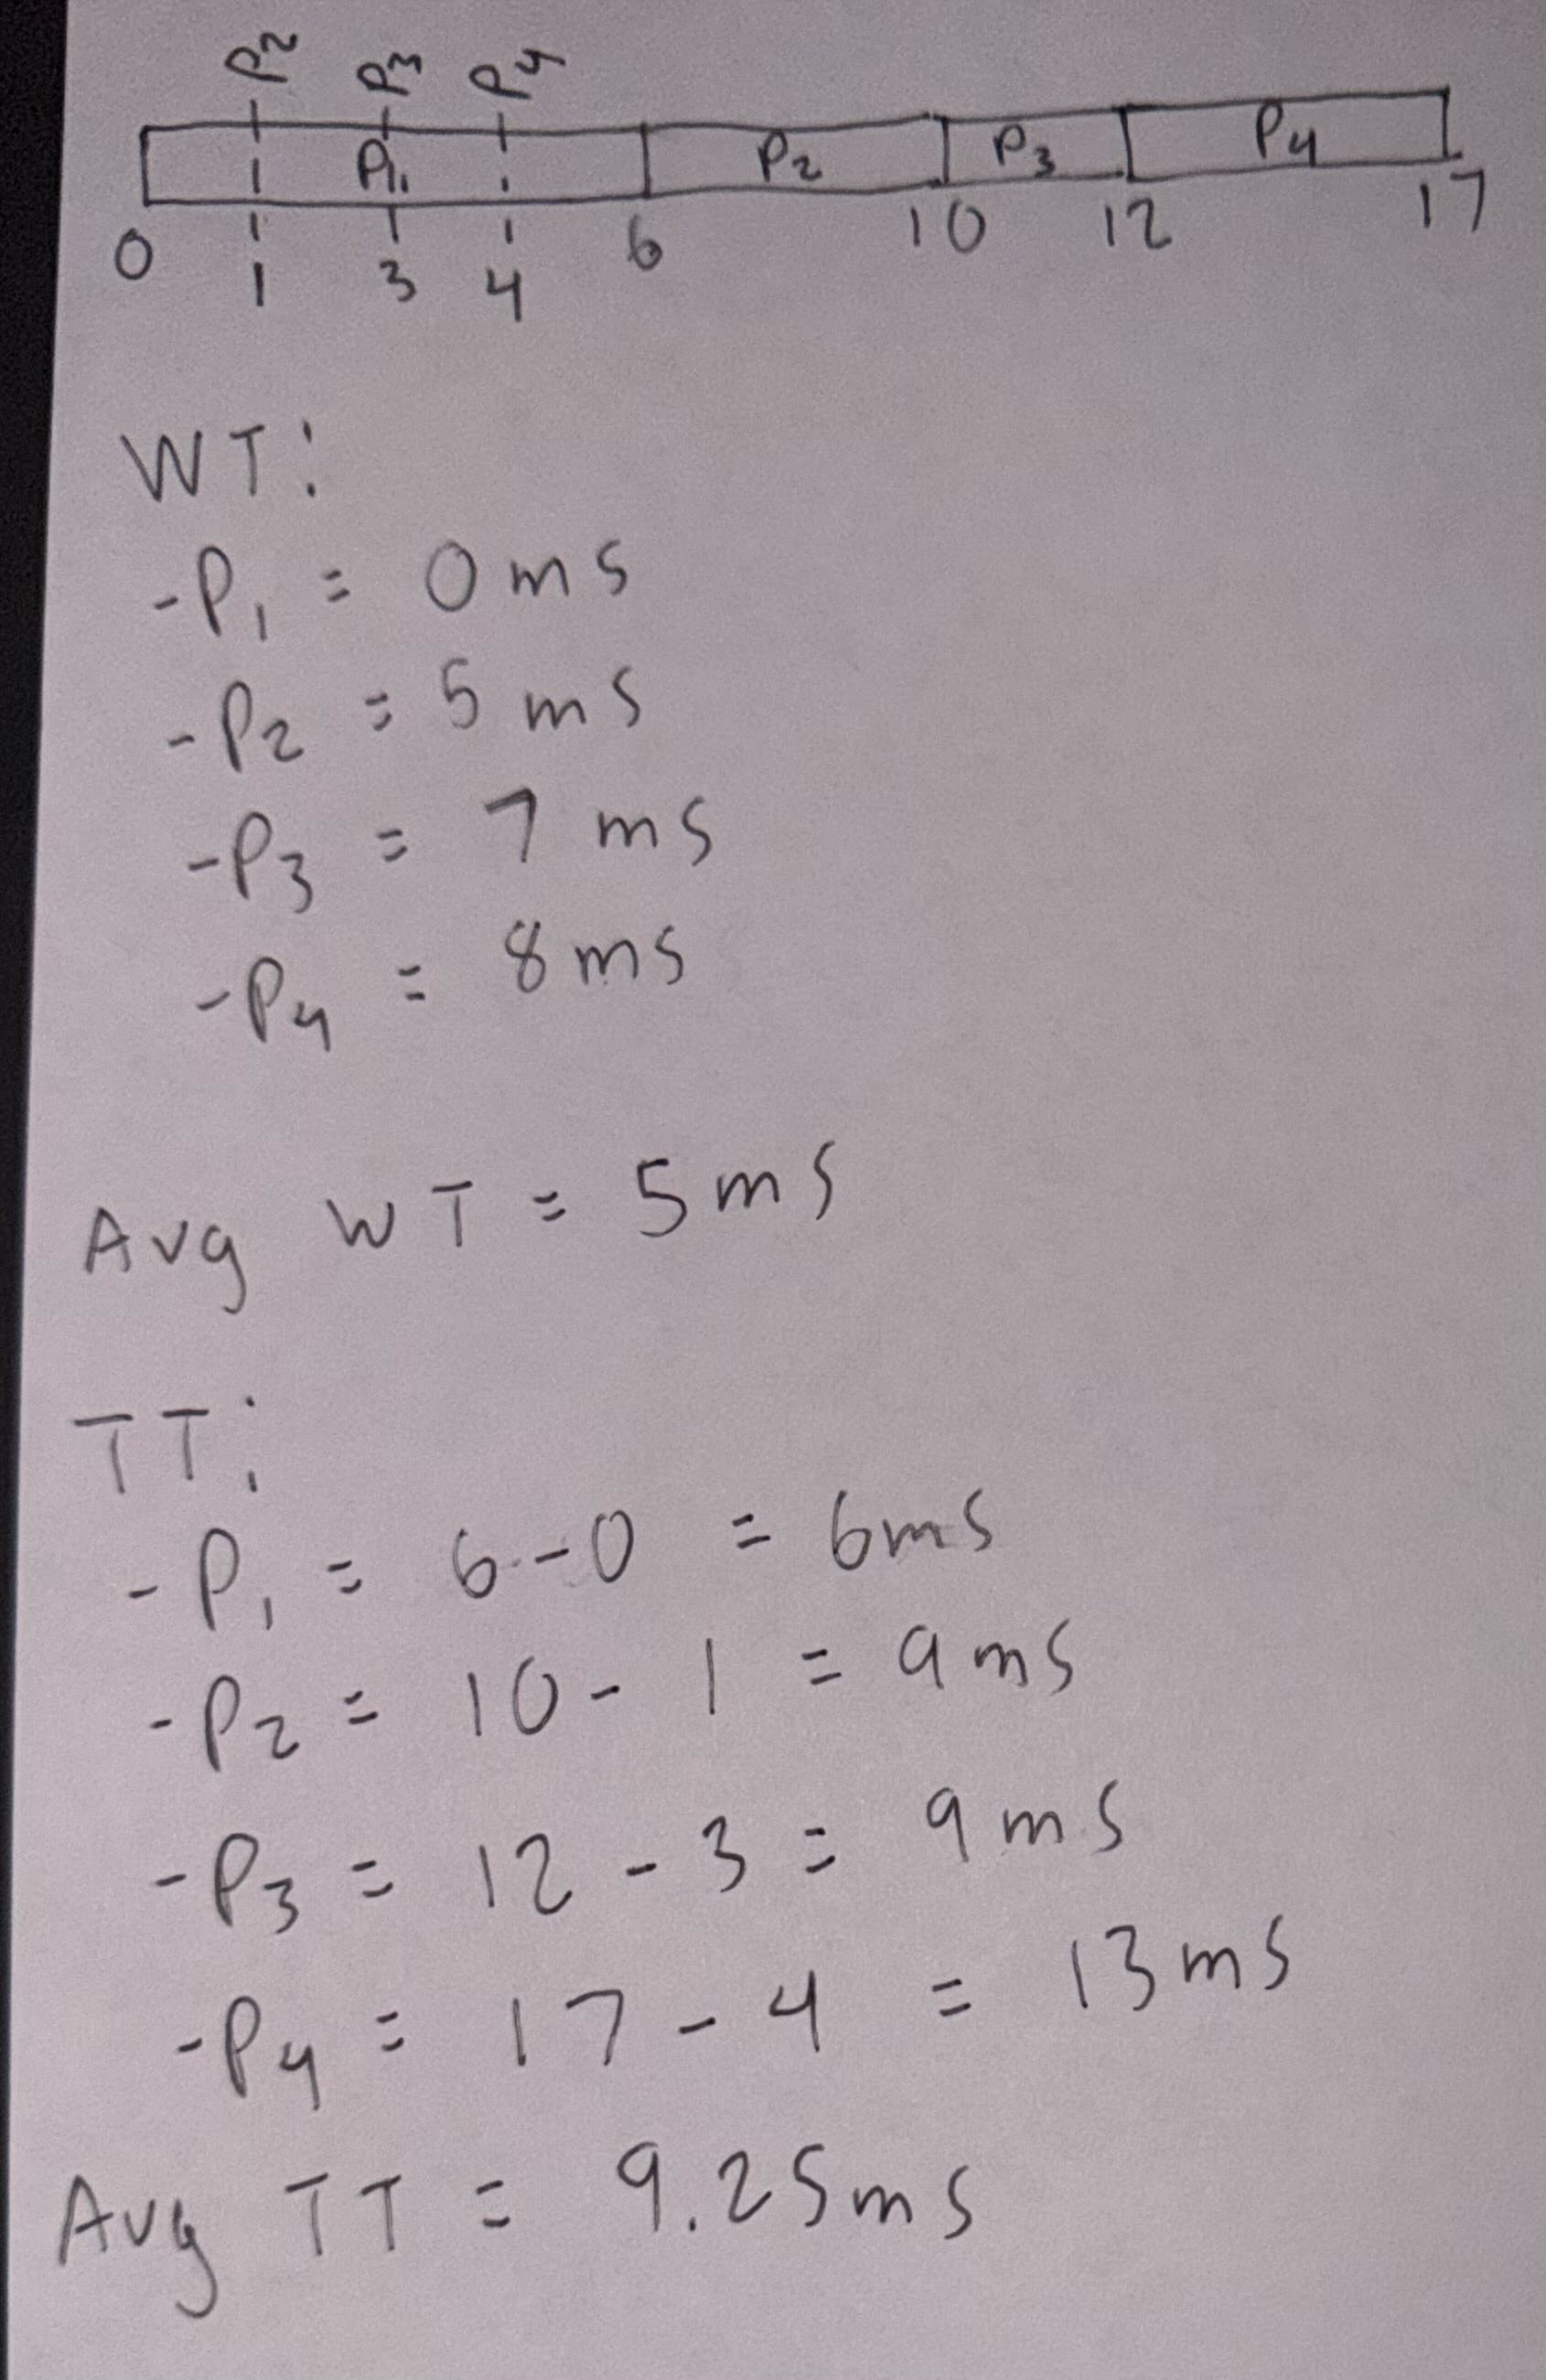 P2 P3 P4
P1 P2 P3 P4
0 1 3 4 6 10 12 17
WT:
-P1 = 0ms
-P2 = 5ms
-P3 = 7ms
-P4 = 8ms
Avg WT = 5ms
TT:
-P1 = 6-0 = 6ms
-P2 = 10-1 = 9ms
-P3 = 12-3 = 9ms
-P4 = 17-4 = 13ms
Avg TT = 9.25ms